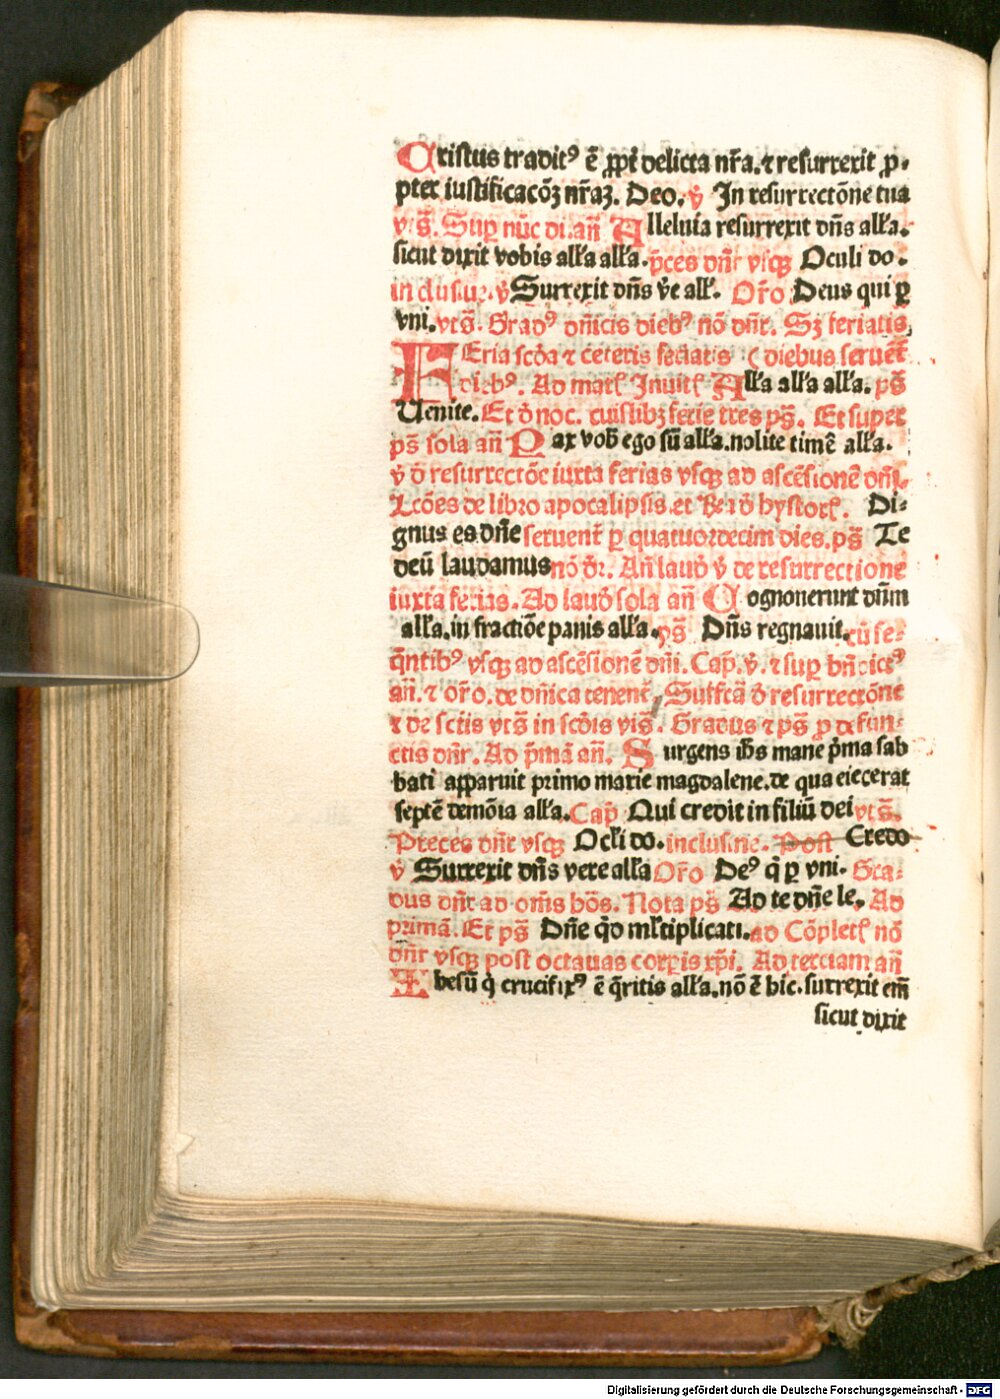 Cristus tradit⁹ ē ꝓpt̄ delicta nr̄a. ⁊ resurrexit ꝓ⸗
pter iustificacōꝫ nr̄aꝫ. Deo. v̇ In resurrectōne tua
vt s̄. Sup̲ nūc di. an̄ Alleluia resurrexit dn̄s all'a.
sicut dixit vobis all'a all'a. p̄ces dn̄r vsqꝫ Oculi do⸗
inclusiue. v̇ Surrexit dn̄s v̄e all'. Or̄o Deus qui ꝑ
vni. vt s̄. Grad⁹ dn̄icis dieb⁹ nō dn̄r. Sꝫ feriatis
FEria scd̄a ⁊ ceteris feriatis diebus seruet̄
dieb⁹. Ad mat̄ Inuit̄ All'a all'a all'a. ps̄
Uenite. Et d̄ noc. cuiuslibꝫ ferie tres ps̄. Et super
ps̄ sola an̄ Pax vob̄ ego sū all'a. nolite timē all'a.
v̇ d̄ resurrectōe iuxta ferias vsqꝫ ad ascēsionē dn̄i.
Lcōes de libro apocalipsis. et d̄ hystor̄. Di⸗
gnus es dn̄e seruent̄ ꝑ quatuordecim dies. ps̄ Te
deū laudamus nō d̄r. An̄ laud̄ v̇ de resurrectione
iuxta ferias. Ad laud̄ sola an̄ Cognouerunt dn̄m
all'a. in fractiōe panis all'a. ps̄ Dn̄s regnauit. cū se⸗
q̄ntib⁹ vsqꝫ ad ascēsionē dn̄i. Cap̄. v̇. ⁊ sup̲ bn̄dict⁹
an̄. ⁊ or̄o. de dn̄ica tenent̄. Suffr̄a d̄ resurrectōne
⁊ de sct̄is vt s̄ in scd̄is vs̄. Gradus ⁊ ps̄ ꝓ defun⸗
ctis dn̄r. Ad p̄mā an̄. Surgens ih̄s mane p̄ma sab
bati apparuit primo marie magdalene. de qua eiecerat
septē demōia all'a. Cap̄ Qui credit in filiū dei vt s̄.
Preces dn̄r vsqꝫ Ocl'i do. inclusiue. Post Credo
v̇ Surrexit dn̄s vere all'a Or̄o De⁹ q̄ ꝑ vni. Gra⸗
dus dn̄r ad om̄s hōs. Nota ps̄ Ad te dn̄e le. Ad
primā. Et ps̄ Dn̄e q̄d ml'tiplicati. ad Cōplet̄ nō
dn̄r vsqꝫ post octauas corꝑis xp̄i. Ad terciam an̄
Ihesū q̄ crucifix⁹ ē q̄ritis all'a. nō ē hic. surrexit em̄
sicut dixit
Digitalisierung gefördert durch die Deutsche Forschungsgemeinschaft - DFG